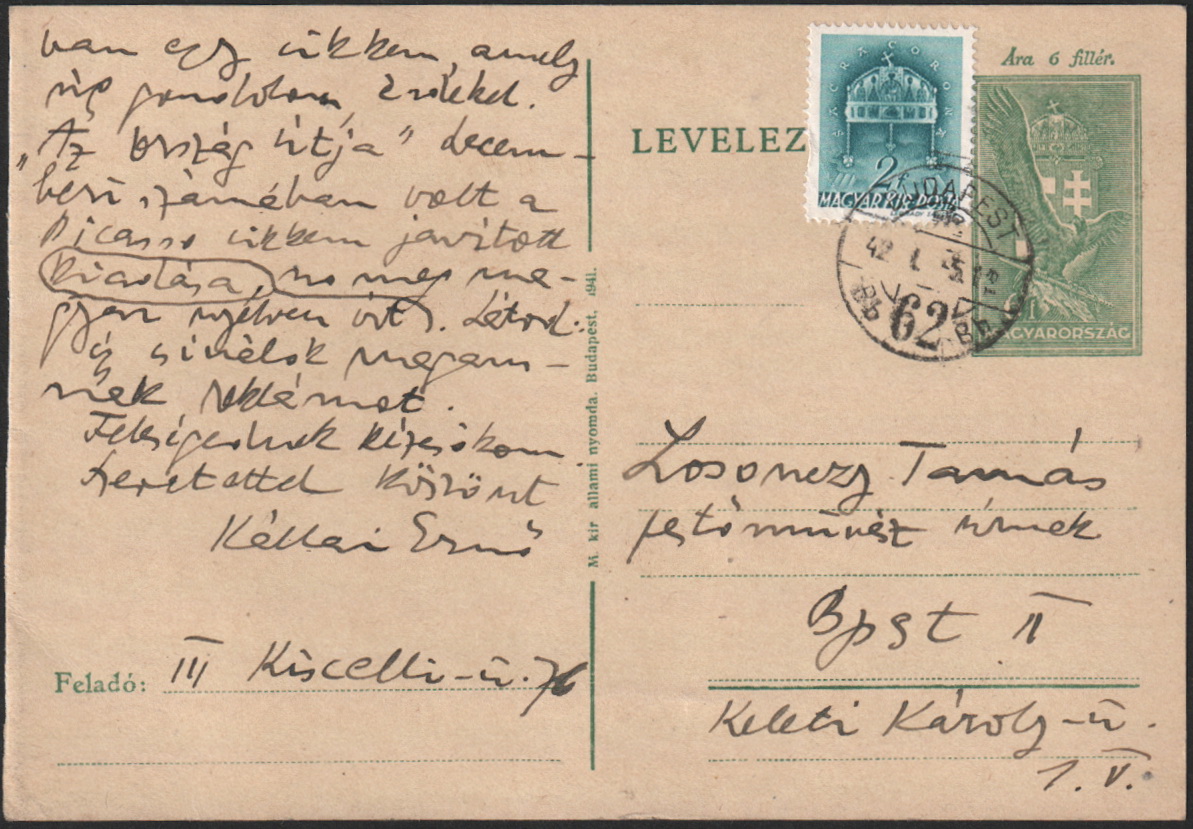 van egy cikkem, amely
úgy gondolom, érdekel.
"Az ország útja" decem-
beri számában volt a
Picasso cikkem javított
kiadása, no meg ma-
gyar nyelven írt.
és csinálok magam-
nak reklámot.
Feleségednek kézcsókom
szeretettel köszönt
Kállai Ernő
Feladó: III Kiscelli-u. 76
M. kir. állami nyomda. Budapest, 1941.
LEVELEZ
Ára 6 fillér.
SACRA CORONA
2f
MAGYAR KIR. POSTA
MAGYARORSZÁG
BUDAPEST
42 I. 5
62
Losonczy Tamás
festőművész úrnak
Bpest II
Keleti Károly-u.
1. V.